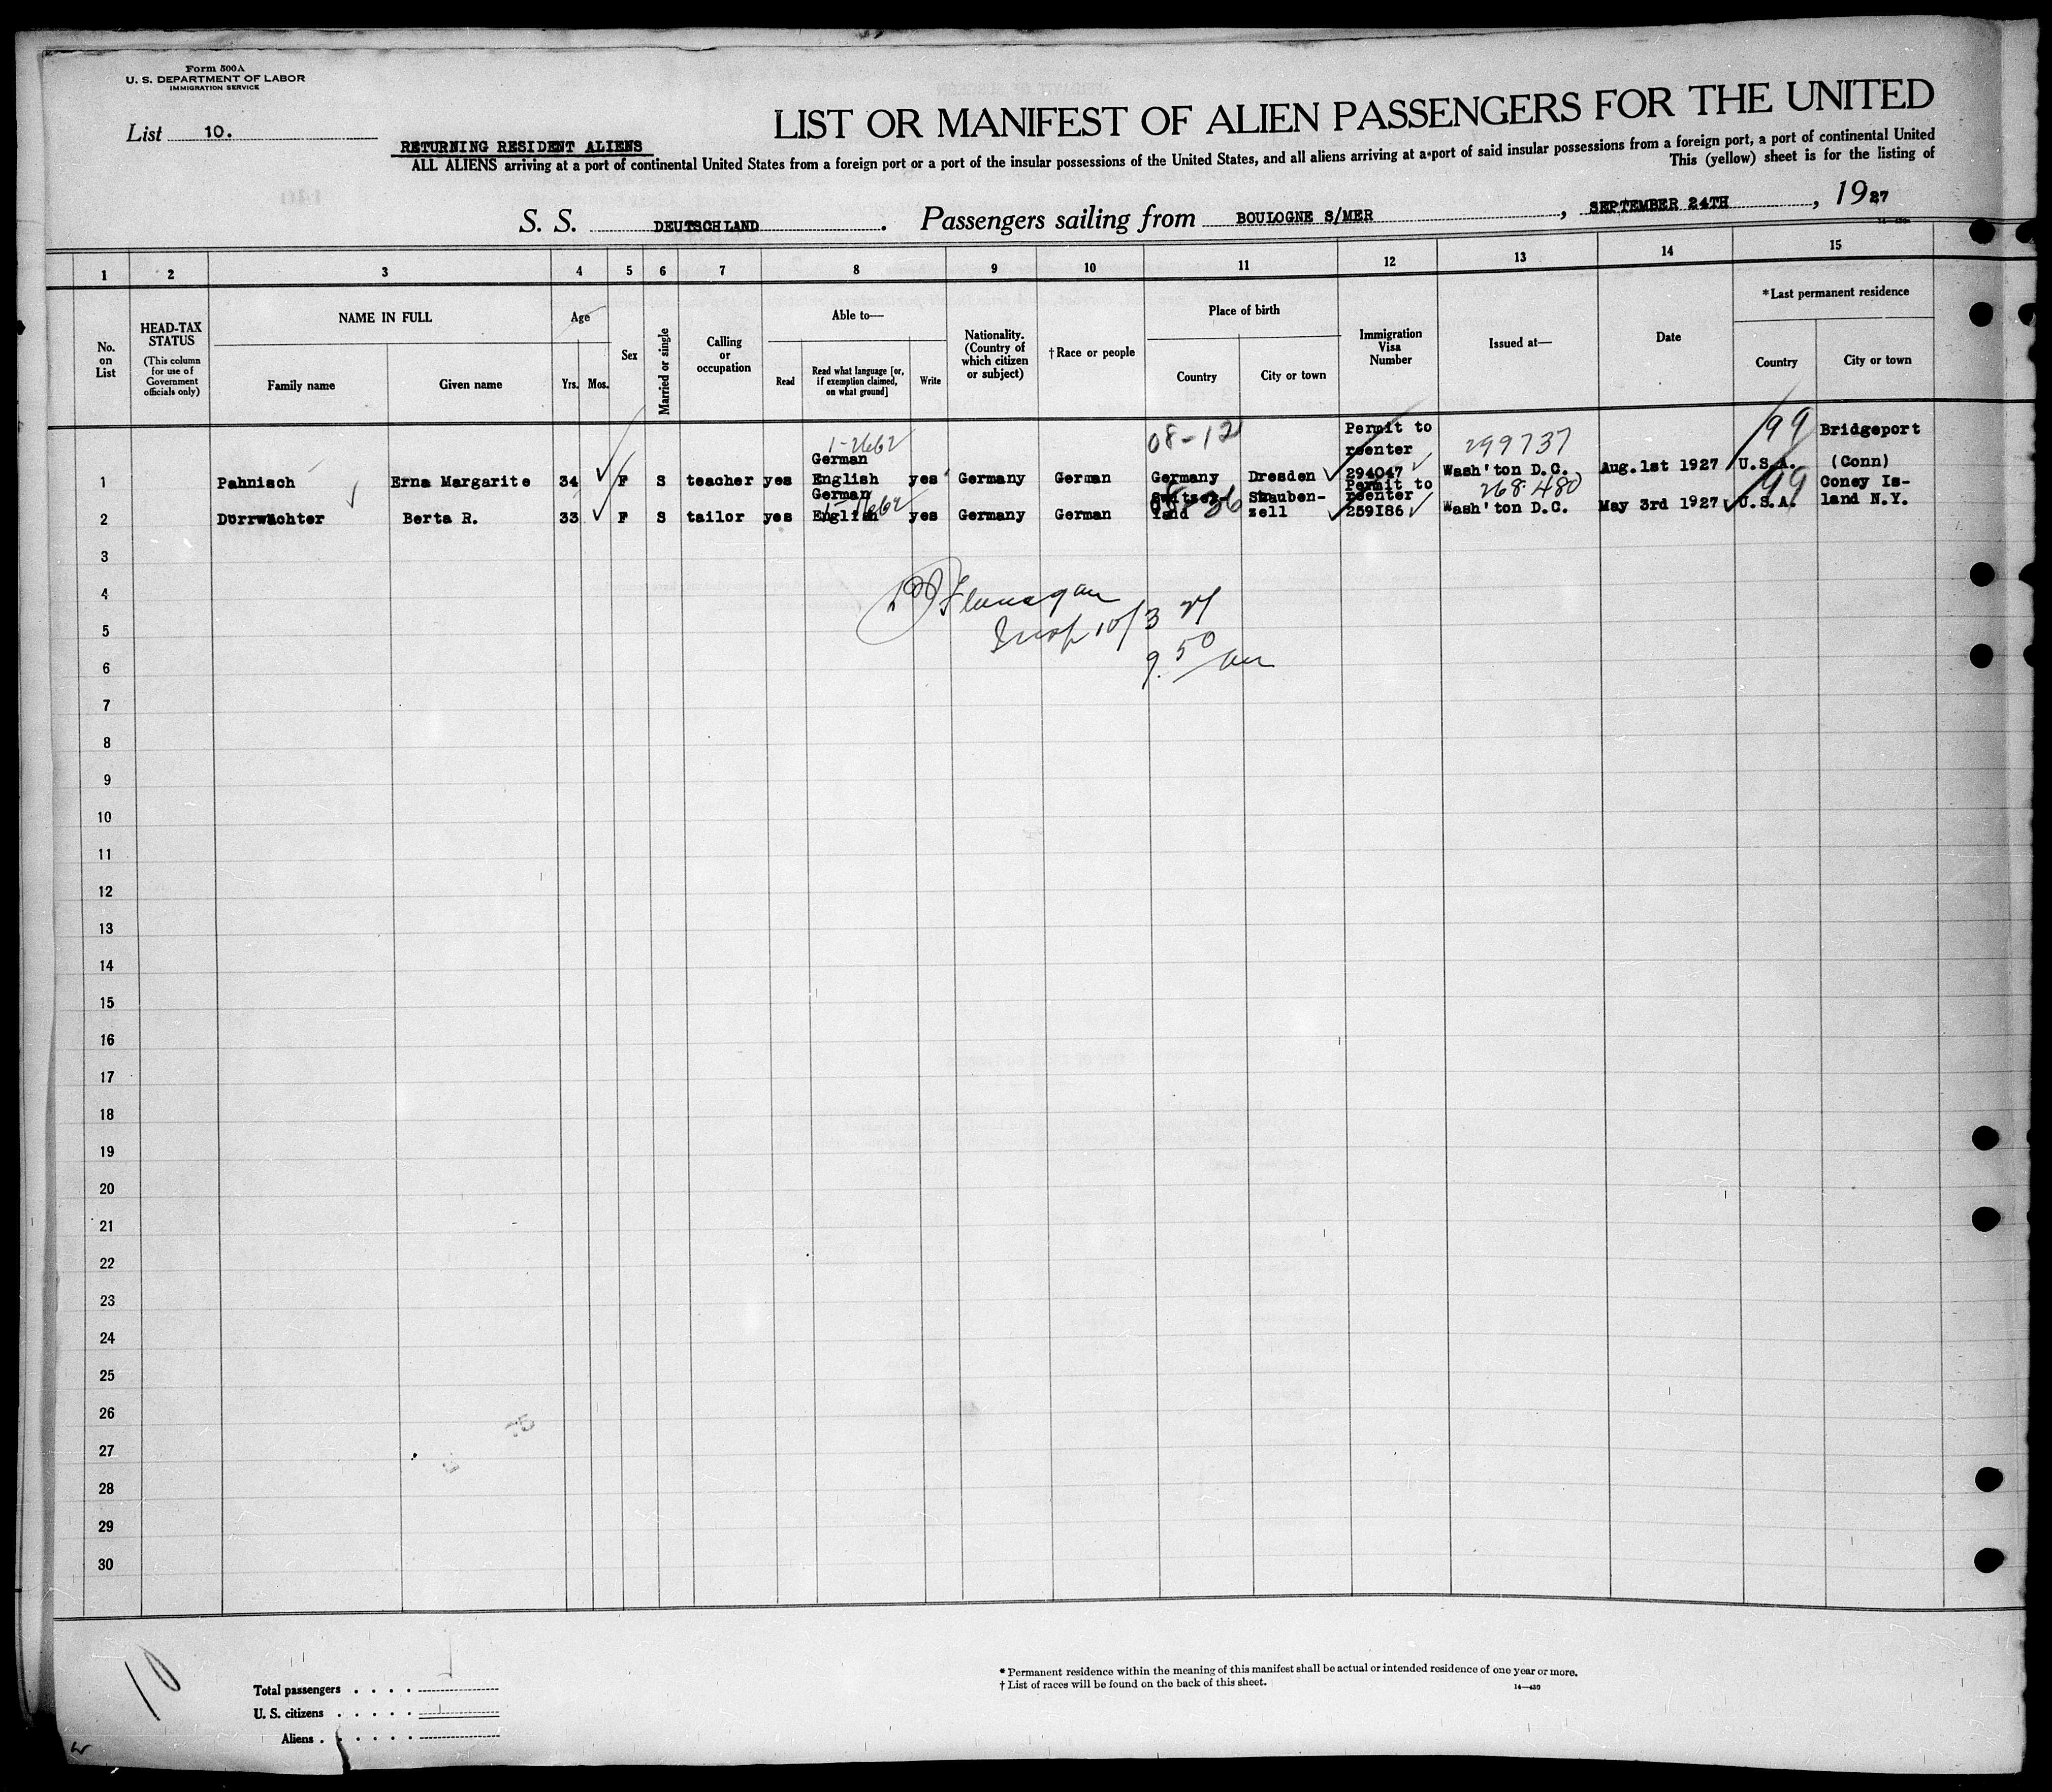 Form 500A
U. S. DEPARTMENT OF LABOR
IMMIGRATION SERVICE
List 10.
LIST OR MANIFEST OF ALIEN PASSENGERS FOR THE UNITED
RETURNING RESIDENT ALIENS
ALL ALIENS arriving at a port of continental United States from a foreign port or a port of the insular possessions of the United States, and all aliens arriving at a port of said insular possessions from a foreign port, a port of continental United
This (yellow) sheet is for the listing of
S. S. DEUTSCHLAND. Passengers sailing from BOULOGNE S/MER, SEPTEMBER 24TH, 1927
1 2 3 4 5 6 7 8 9 10 11 12 13 14 15
No. on List
HEAD-TAX STATUS
(This column for use of Government officials only)
NAME IN FULL
Family name
Given name
Age
Yrs. Mos.
Sex
Married or single
Calling or occupation
Able to—
Read
Read what language [or, if exemption claimed, on what ground]
Write
Nationality. (Country of which citizen or subject)
†Race or people
Place of birth
Country
City or town
Immigration Visa Number
Issued at—
Date
*Last permanent residence
Country
City or town
1-2662 08-12 Permit to reenter 299737 99 Bridgeport
1 Pahnisch Erna Margarite 34 F S teacher yes German English yes Germany German Germany Dresden 294047 Wash'ton D.C. Aug.1st 1927 U.S.A. (Conn)
Permit to reenter 268480 99 Coney Is-
2 Dörrwächter Berta R. 33 F S tailor yes German English yes Germany German Switzer-land 259186 Wash'ton D.C. May 3rd 1927 U.S.A. land N.Y.
3
4
5
6
7
8
9
10
11
12
13
14
15
16
17
18
19
20
21
22
23
24
25
26
27
28
29
30
Flanagan
Insp 10/3 27
9.50 am
10
Total passengers
U. S. citizens
Aliens
* Permanent residence within the meaning of this manifest shall be actual or intended residence of one year or more.
† List of races will be found on the back of this sheet.
14—430